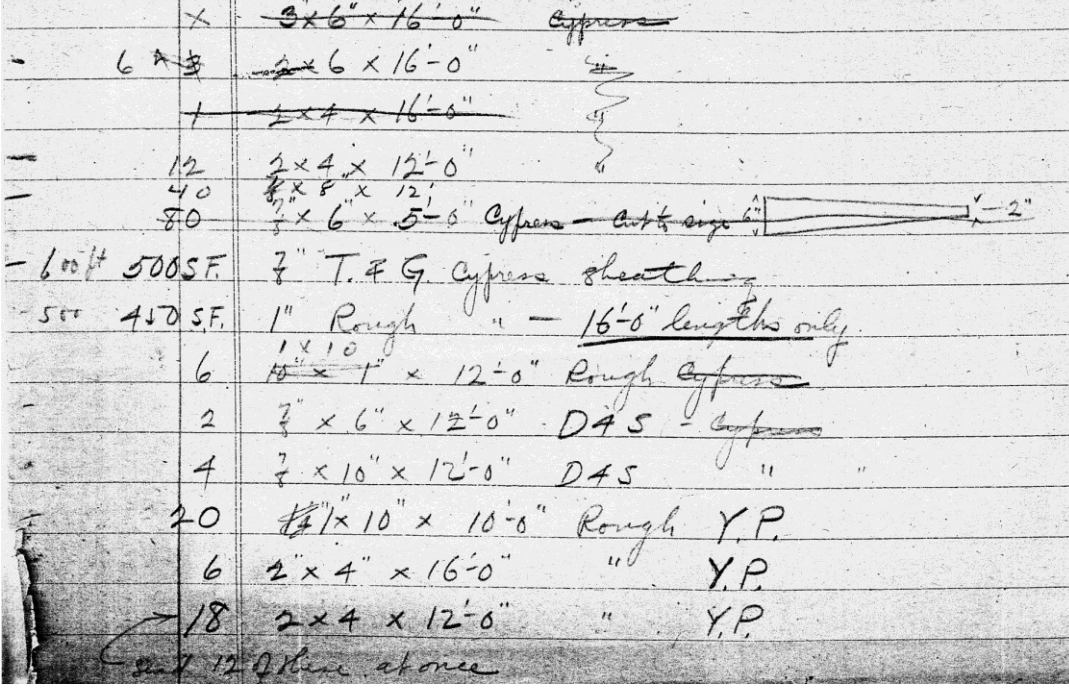 x 3" x 6" x 16'-0" Cypress
6 2 x 6 x 16'-0" "
1 2 x 4 x 16'-0" "
12 2 x 4 x 12'-0" "
40 x 8" x 12'
80 7/8" x 6" x 5'-0" Cypress - Cut to size 6" - 2"
600 ft 500 S.F. 7/8" T. & G. Cypress Sheathing
500 450 S.F. 1" Rough " - 16'-0" lengths only.
1 x 10
6 10" x 1" x 12'-0" Rough Cypress
2 7/8" x 6" x 12'-0" D4S - Cypress
4 7/8 x 10" x 12'-0" D4S " "
20 1" x 10" x 10'-0" Rough Y.P.
6 2" x 4" x 16'-0" " Y.P.
18 2 x 4 x 12'-0" " Y.P.
send 12 of these at once